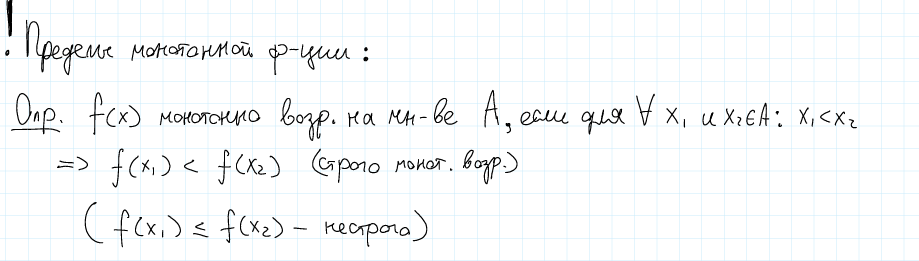 ! Пределы монотонной ф-ции:
Опр. f(x) монотонно возр. на мн-ве A, если для ∀ x₁ и x₂∈A: x₁<x₂
=> f(x₁) < f(x₂) (строго монот. возр.)
(f(x₁) ≤ f(x₂) – нестрого)